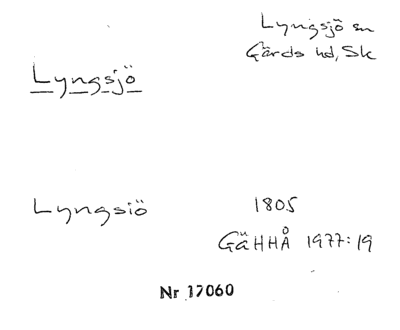 Lyngsjö sn
Gärds hd, Sk
Lyngsjö
Lyngsiö 1805
GäHHÅ 1977:19
Nr 17060